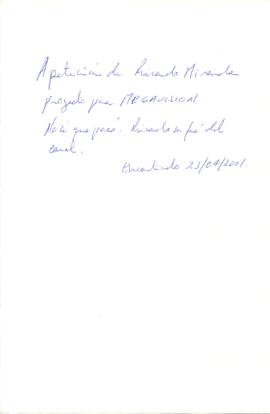 A petición de Ricardo Miranda
proyecto para MEGAVISION.
No sé que pasó. Ricardo se fué del
canal.
Encontrado 23/04/2001.